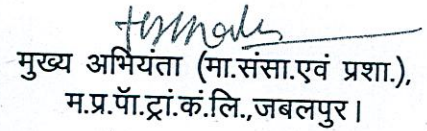 मुख्य अभियंता (मा.संसा.एवं प्रशा.),
म.प्र.पॅा.ट्रां.कं.लि.,जबलपुर।